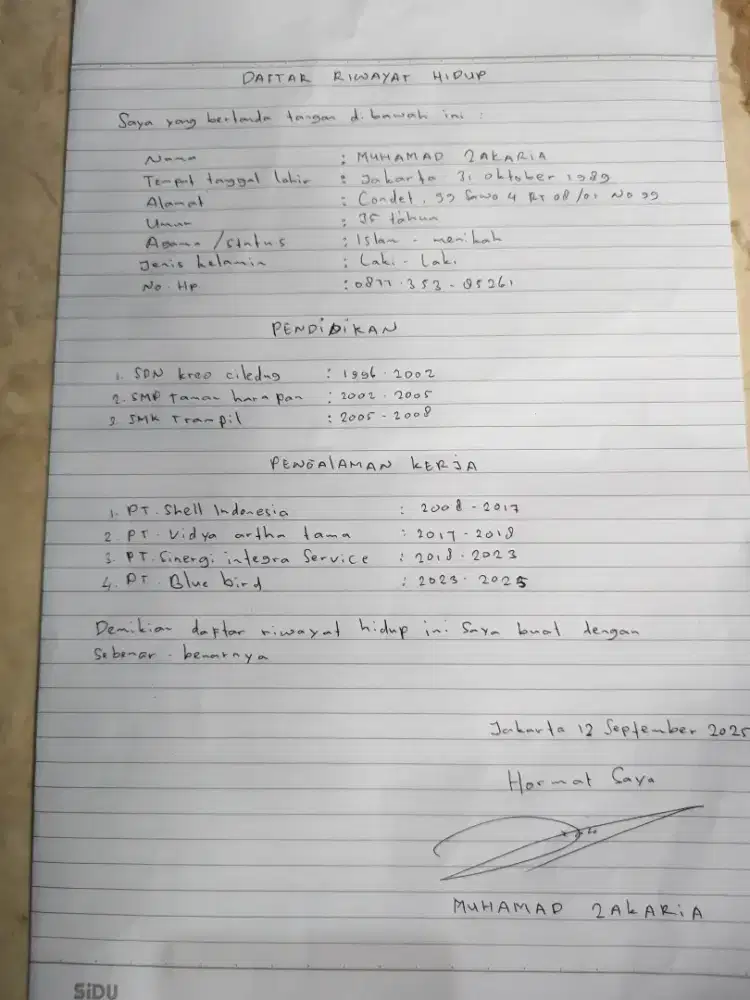 DAFTAR RIWAYAT HIDUP
Saya yang bertanda tangan dibawah ini :
Nama : MUHAMAD ZAKARIA
Tempat tanggal lahir : Jakarta 31 oktober 1989
Alamat : Condet, Sawo 4 RT 08/01 No 99
Umur : 35 tahun
Agama / status : Islam - menikah
Jenis kelamin : Laki - Laki
No. HP : 0877-353-85261
PENDIDIKAN
1. SDN kreo ciledug : 1996 - 2002
2. SMP taman harapan : 2002 - 2005
3. SMK Trampil : 2005 - 2008
PENGALAMAN KERJA
1. PT. Shell Indonesia : 2008 - 2017
2. PT. Vidya artha tama : 2017 - 2018
3. PT. Sinergi integra Service : 2018 - 2023
4. PT. Blue bird : 2023 - 2025
Demikian daftar riwayat hidup ini saya buat dengan
Sebenar - benarnya
Jakarta 12 September 2025
Hormat Saya
MUHAMAD ZAKARIA
SiDU